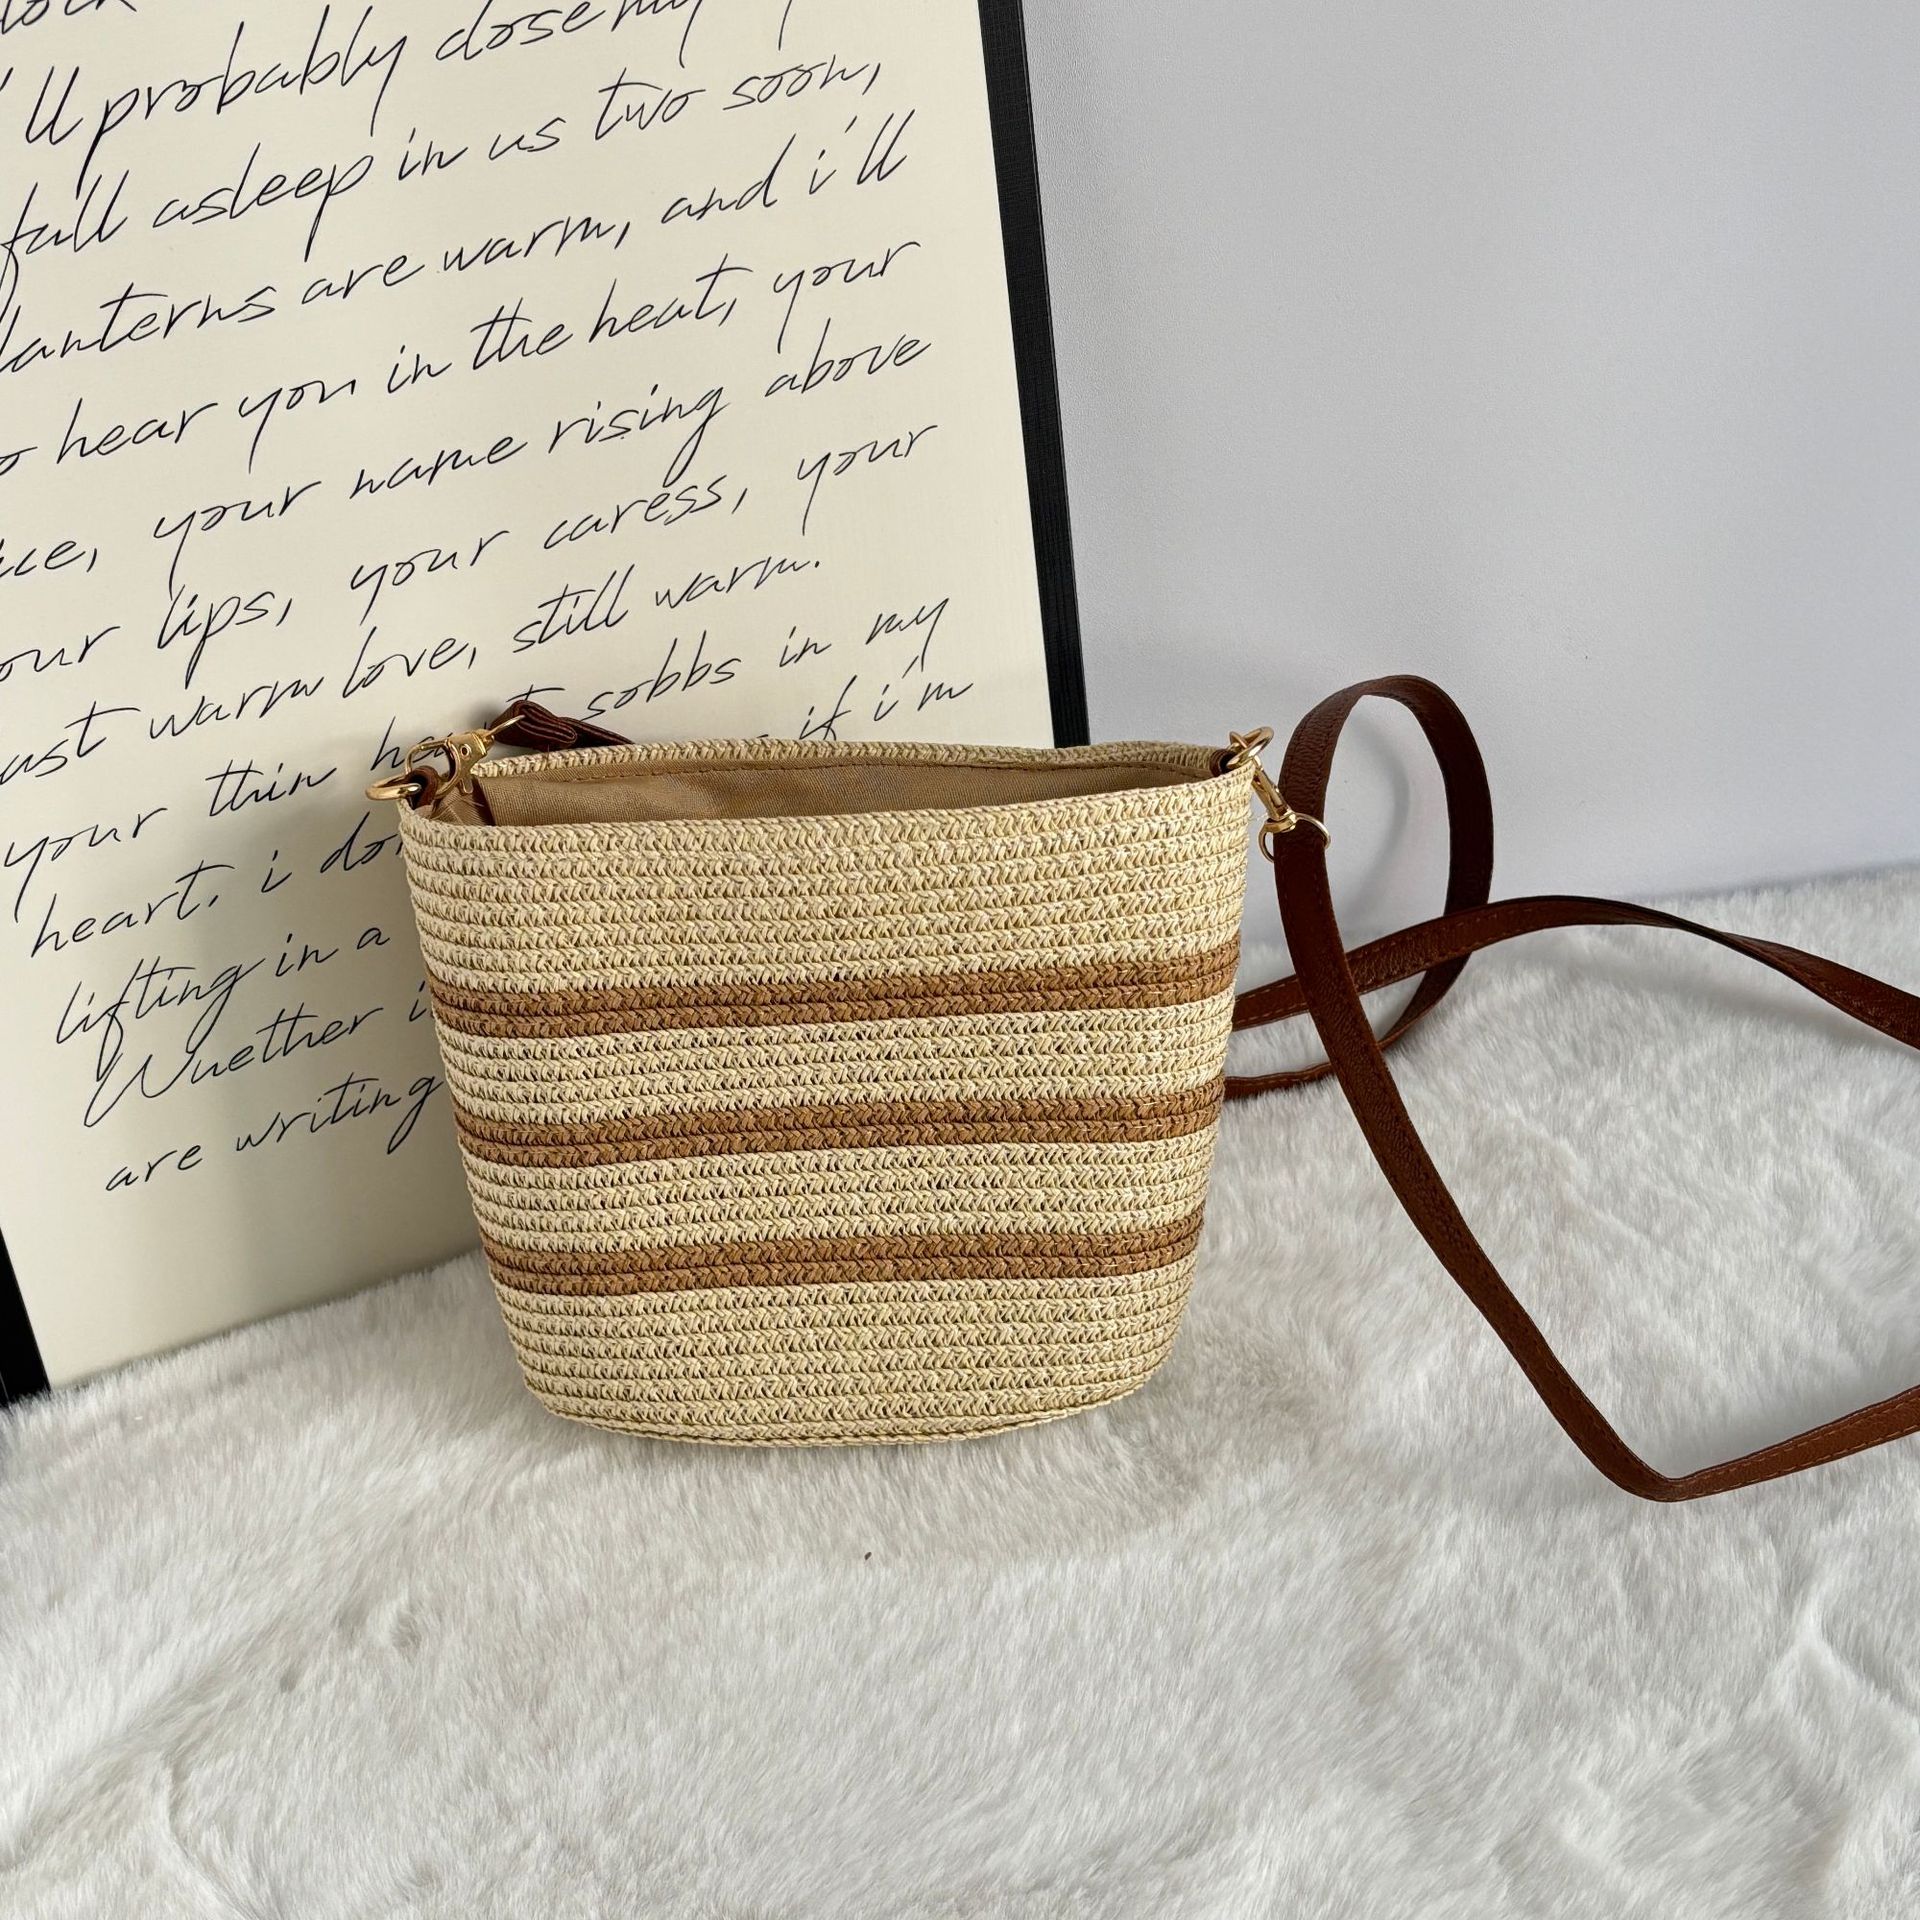 'll probably close my
fall asleep in us two soon,
lanterns are warm, and i'll
hear you in the heat, your
your name rising above
lips, your caress, your
warm love, still warm.
your thin sobbs in my
heart. i if i'm
lifting in a
Wuether i
are writing